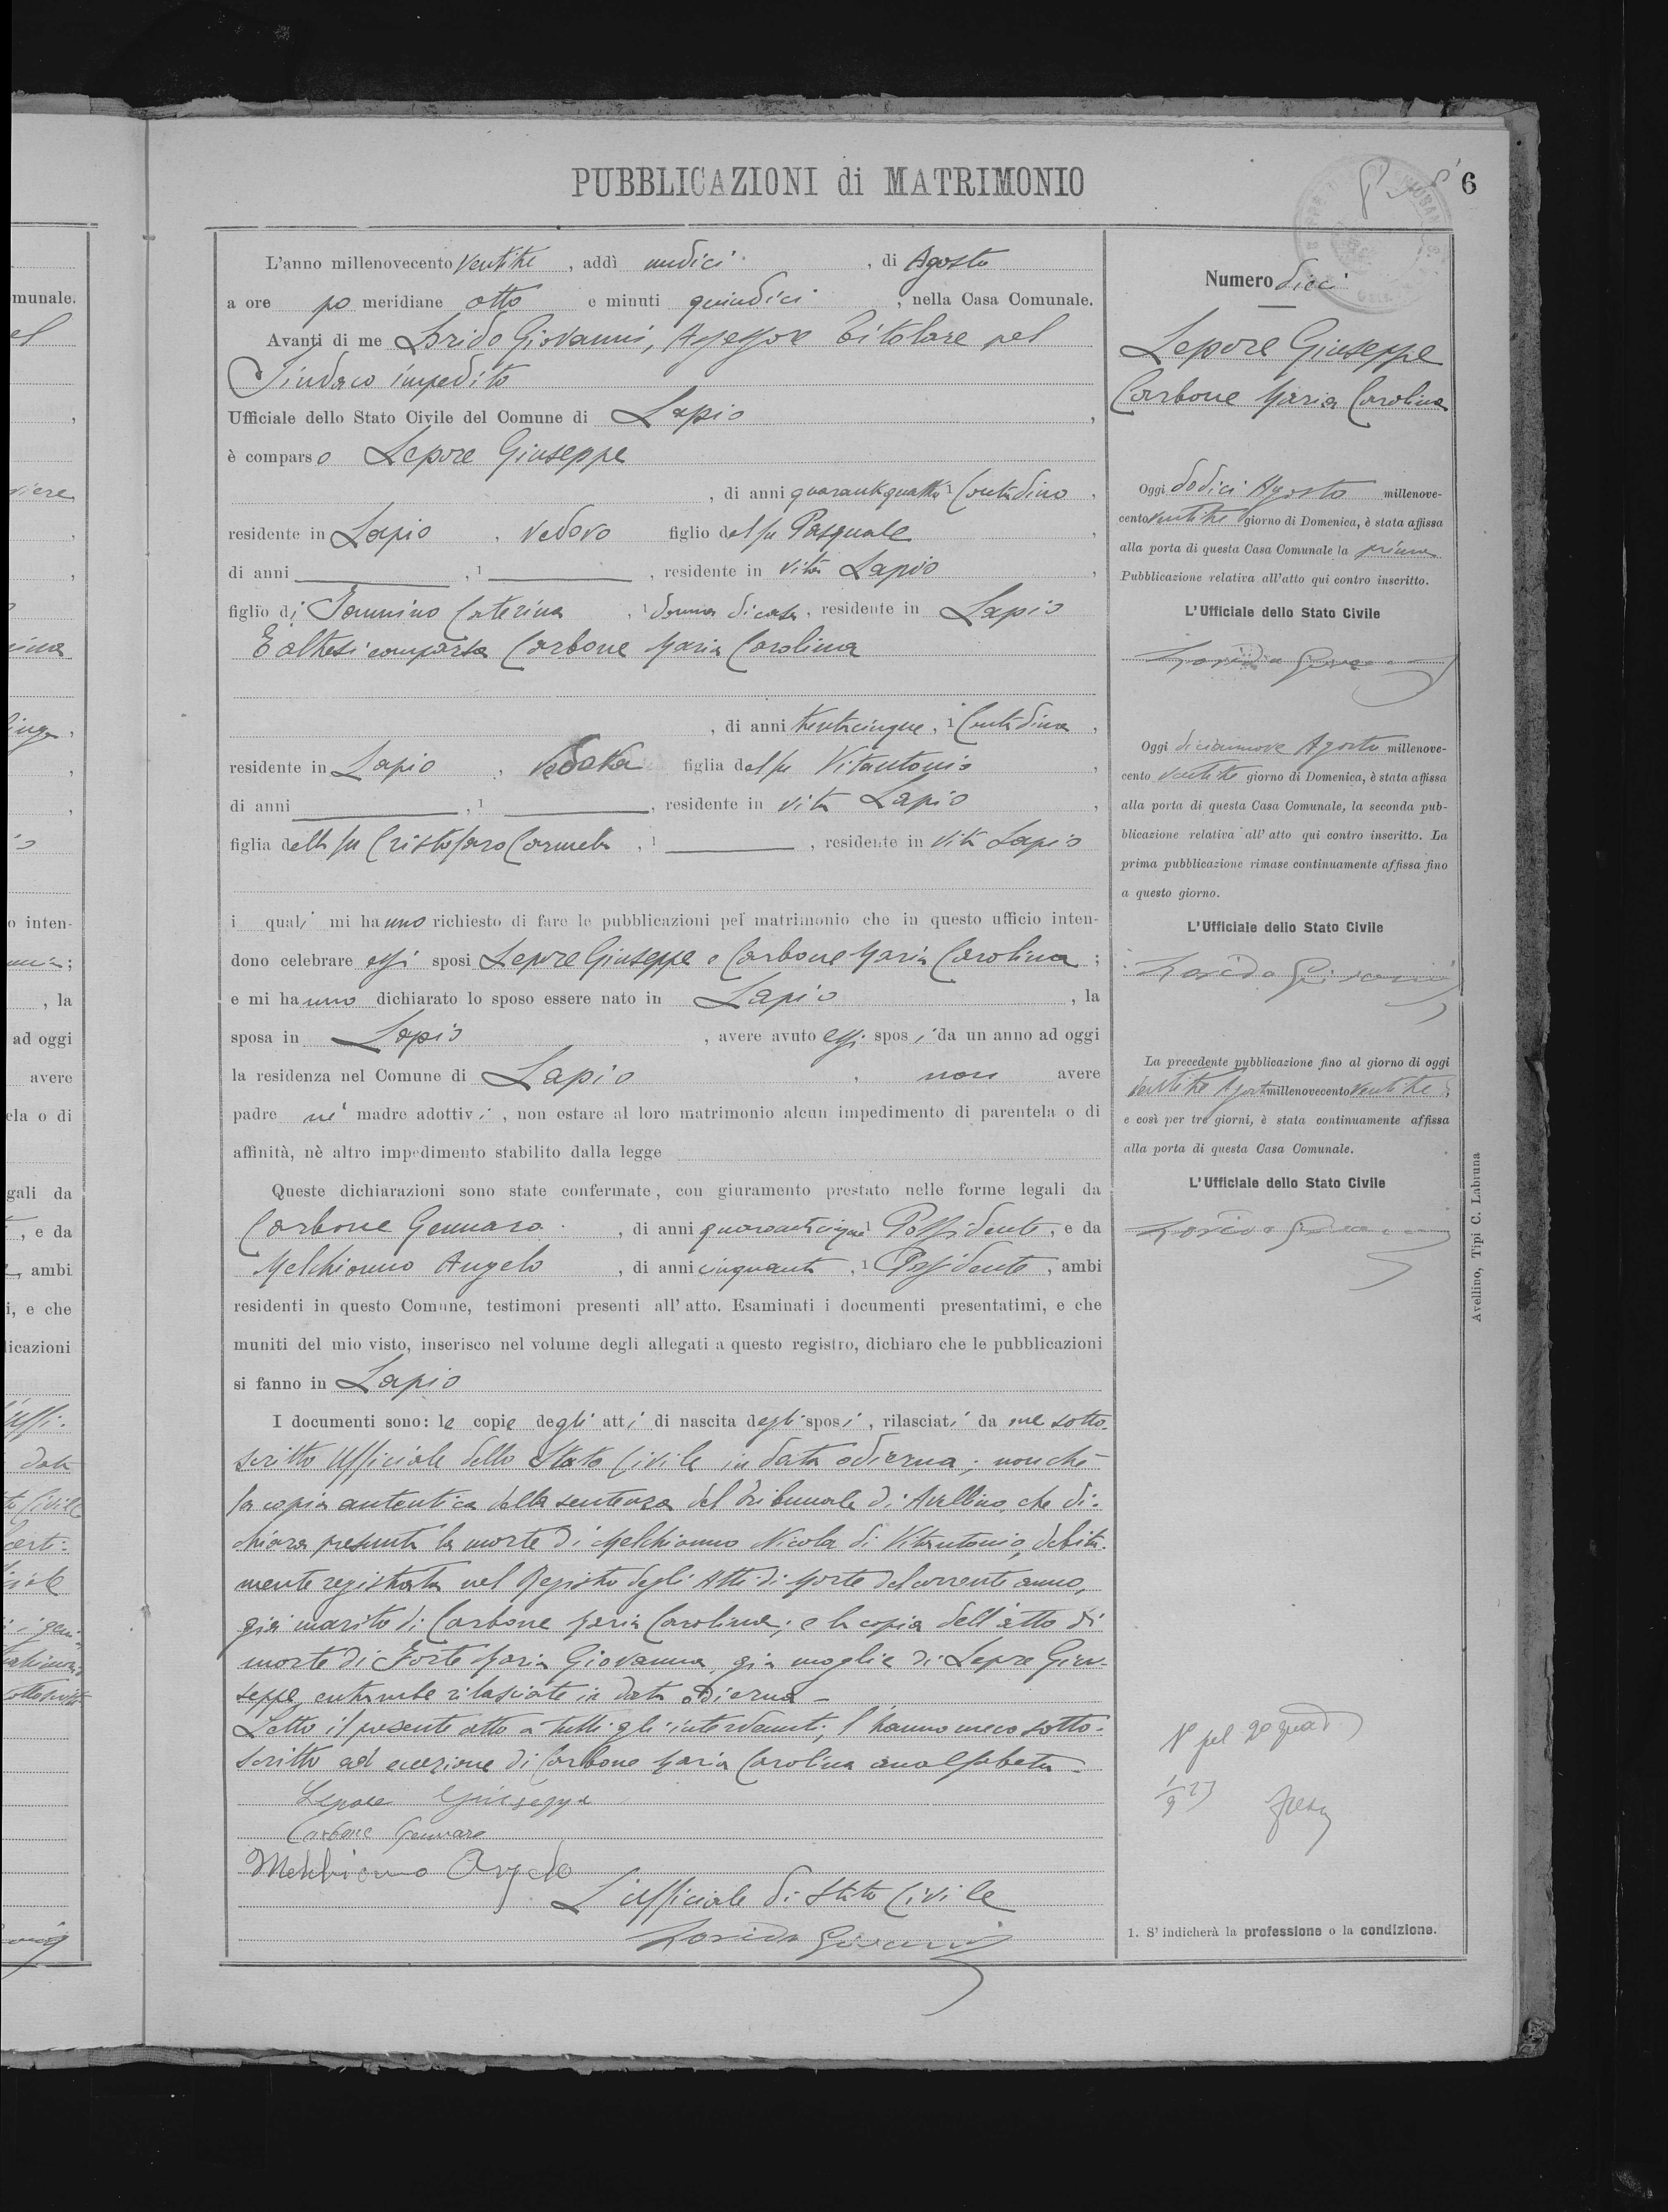 PUBBLICAZIONI di MATRIMONIO
6
L'anno millenovecento Ventitre, addì undici, di Agosto
a ore po meridiane otto e minuti quindici, nella Casa Comunale.
Avanti di me Lorido Giovanni, Assessore titolare pel
Sindaco impedito
Ufficiale dello Stato Civile del Comune di Lapio,
è comparso Lepore Giuseppe
, di anni quarantaquattro 1 Contadino,
residente in Lapio, vedovo figlio del fu Pasquale,
di anni , 1 , residente in vita Lapio,
figlio di Iannino Caterina, 1 donna di casa, residente in Lapio
E altresì comparsa Carbone Maria Carolina
, di anni trentacinque, 1 Contadina,
residente in Lapio, Vedova figlia del fu Vitantonio,
di anni , 1 , residente in vita Lapio,
figlia della fu Cristofaro Carmela, 1 , residente in vita Lapio
i quali mi hanno richiesto di fare le pubblicazioni pel matrimonio che in questo ufficio inten-
dono celebrare essi sposi Lepore Giuseppe e Carbone Maria Carolina;
e mi hanno dichiarato lo sposo essere nato in Lapio, la
sposa in Lapio, avere avuto essi sposi da un anno ad oggi
la residenza nel Comune di Lapio, non avere
padre nè madre adottivi, non ostare al loro matrimonio alcun impedimento di parentela o di
affinità, nè altro impedimento stabilito dalla legge
Queste dichiarazioni sono state confermate, con giuramento prestato nelle forme legali da
Carbone Gennaro, di anni quarantacinque 1 Possidente, e da
Melchionno Angelo, di anni cinquanta, 1 Possidente, ambi
residenti in questo Comune, testimoni presenti all'atto. Esaminati i documenti presentatimi, e che
muniti del mio visto, inserisco nel volume degli allegati a questo registro, dichiaro che le pubblicazioni
si fanno in Lapio
I documenti sono: le copie degli atti di nascita degli sposi, rilasciati da me sotto-
scritto Ufficiale dello Stato Civile in data odierna; nonchè
la copia autentica della sentenza del Tribunale di Avellino che di-
chiara presunta la morte di Melchionno Nicola di Vitantonio, debita-
mente registrata nel Registro degli Atti di Morte del corrente anno,
già marito di Carbone Maria Carolina; e la copia dell'atto di
morte di Forte Maria Giovanna, già moglie di Lepore Giu-
seppe, entrambe rilasciate in data odierna -
Letto il presente atto a tutti gli intervenuti, l'hanno meco sotto-
scritto ad eccezione di Carbone Maria Carolina analfabeta -
Lepore Giuseppe
Carbone Gennaro
Melchionno Angelo
L'Ufficiale di Stato Civile
Lorido Giovanni
Numero dieci
Lepore Giuseppe
Carbone Maria Carolina
Oggi dodici Agosto millenove-
cento ventitre giorno di Domenica, è stata affissa
alla porta di questa Casa Comunale la prima
Pubblicazione relativa all'atto qui contro inscritto.
L'Ufficiale dello Stato Civile
Lorido Giovanni
Oggi diciannove Agosto millenove-
cento ventitre giorno di Domenica, è stata affissa
alla porta di questa Casa Comunale, la seconda pub-
blicazione relativa all'atto qui contro inscritto. La
prima pubblicazione rimase continuamente affissa fino
a questo giorno.
L'Ufficiale dello Stato Civile
Lorido Giovanni
La precedente pubblicazione fino al giorno di oggi
ventitre Agosto millenovecento Ventitre,
e così per tre giorni, è stata continuamente affissa
alla porta di questa Casa Comunale.
L'Ufficiale dello Stato Civile
Lorido Giovanni
1. S'indicherà la professione o la condizione.
Avellino, Tipi C. Labruna
munale.
o inten-
, la
ad oggi
avere
ela o di
gali da
, e da
, ambi
i, e che
licazioni